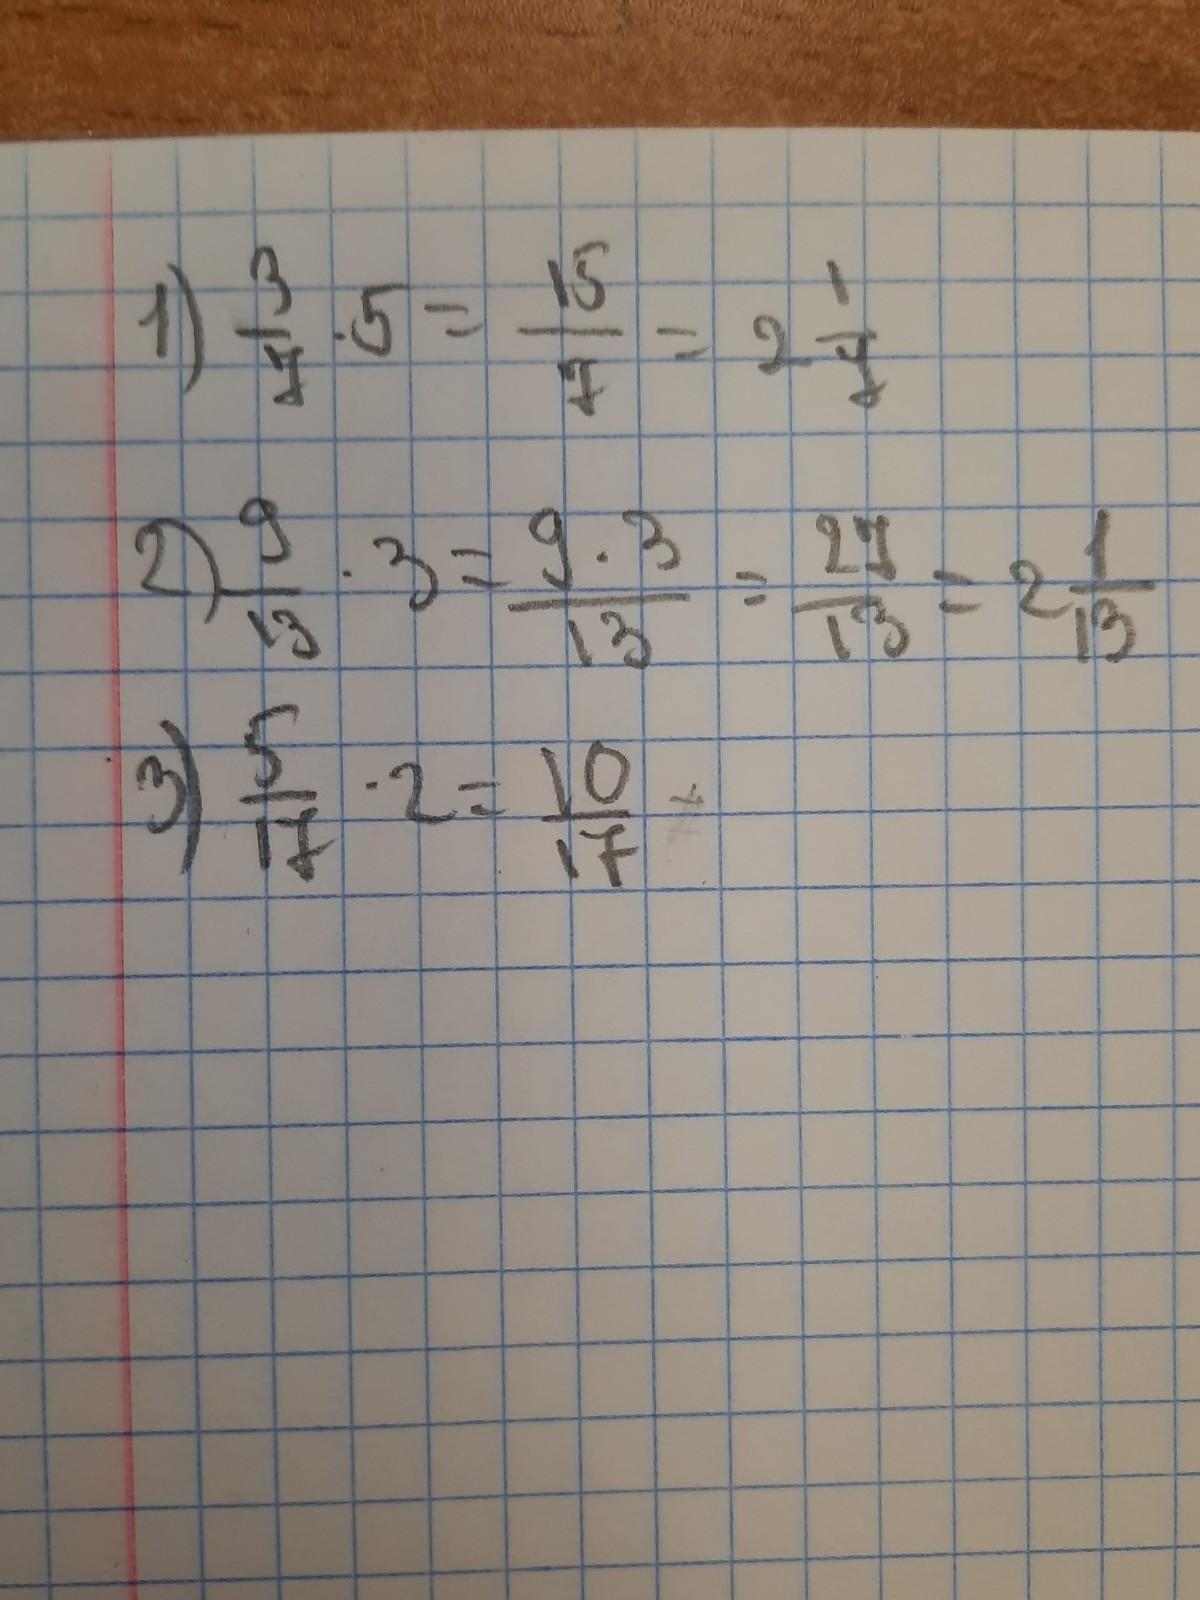 1) 3/7 · 5 = 15/7 = 2 1/7
2) 9/13 · 3 = 9 · 3/13 = 27/13 = 2 1/13
3) 5/17 · 2 = 10/17